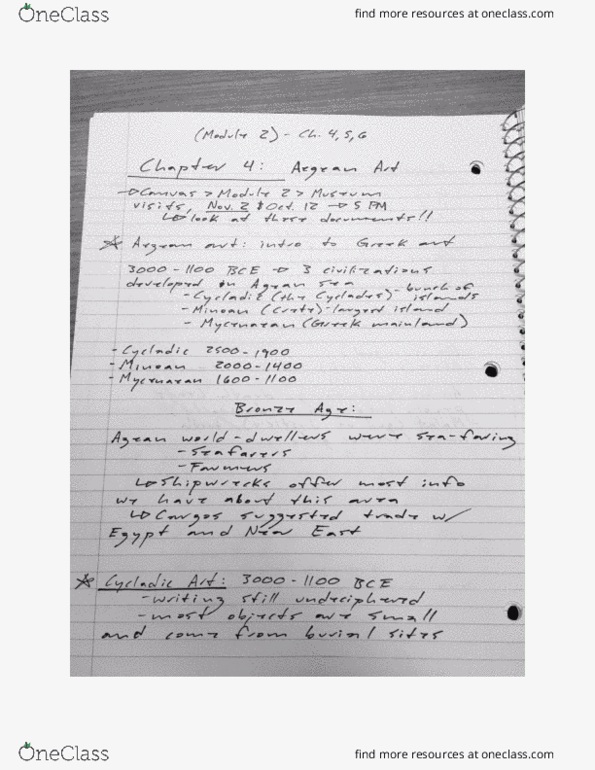 OneClass
find more resources at oneclass.com
(Module 2) - Ch. 4, 5, 6
Chapter 4: Aegean Art
→ Canvas > Module 2 > Museum
visits, Nov. 2 & Oct. 12 → 5 PM
↳ look at these documents!!
☆ Aegean art: intro to Greek art
3000-1100 BCE → 3 civilizations
developed in Agean sea
- Cycladic (the Cyclades) - bunch of islands
- Minoan (Crete) - largest island
- Mycenaean (Greek mainland)
- Cycladic 2500-1900
- Minoan 2000-1400
- Mycenaean 1600-1100
Bronze Age:
Agean world-dwellers were sea-faring
- Seafarers
- Farmers
↳ Shipwrecks offer most info
we have about this area
↳ Cargos suggested trade w/
Egypt and Near East
☆ Cycladic Art: 3000-1100 BCE
- writing still undeciphered
- most objects are small
and come from burial sites
OneClass
find more resources at oneclass.com